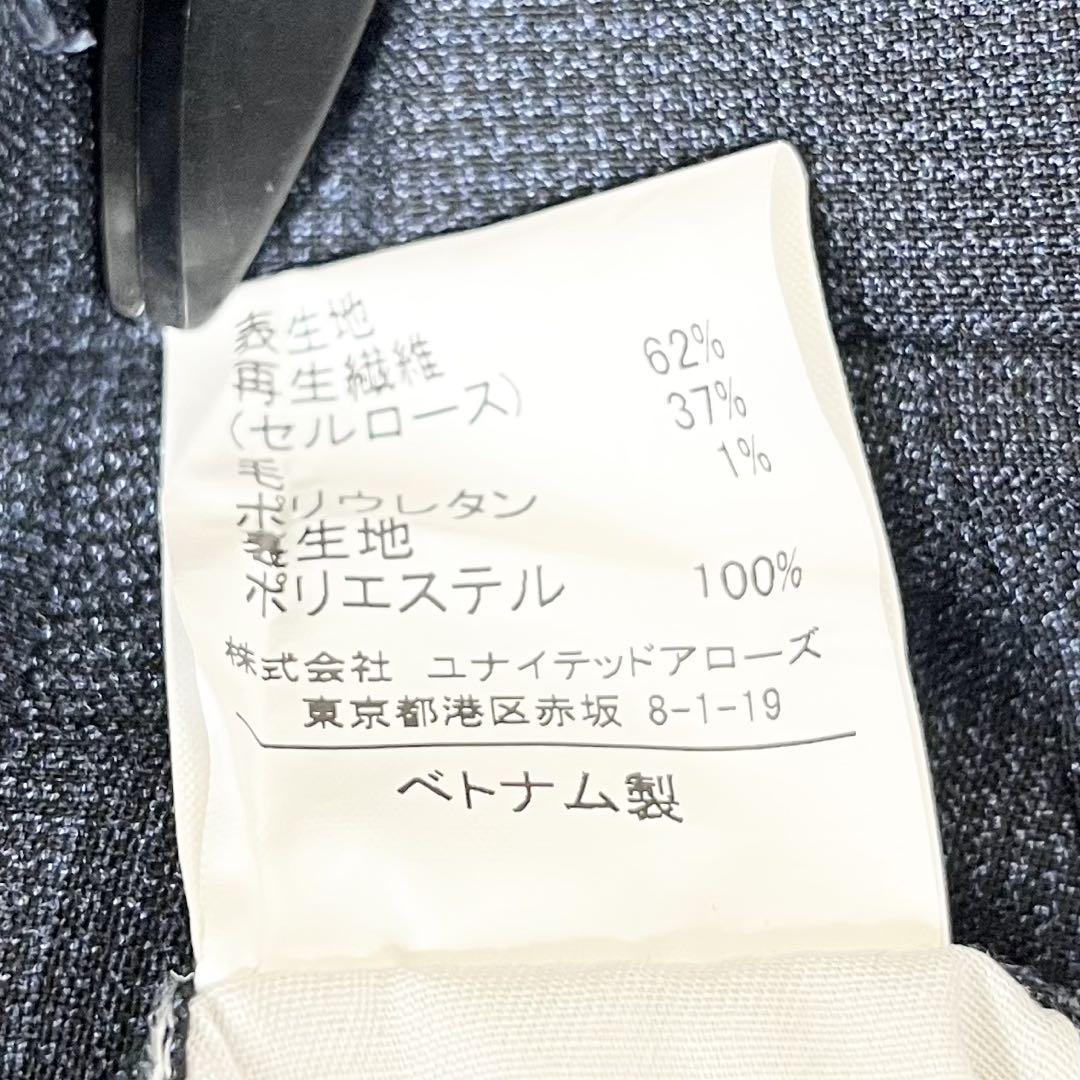 表生地
再生繊維
(セルロース) 62%
毛 37%
ポリウレタン 1%
裏生地
ポリエステル 100%
株式会社 ユナイテッドアローズ
東京都港区赤坂 8-1-19
ベトナム製